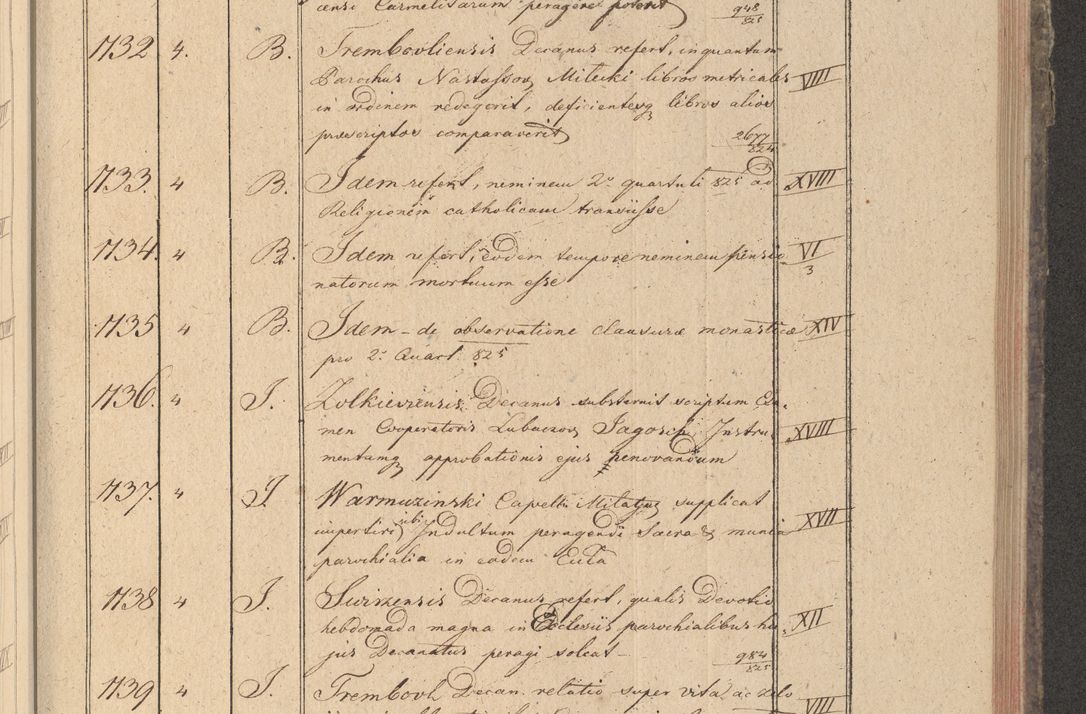 censi Carmelitarum peragere poterit 948/825
1732 4. B. Trembovliensis Decanus refert, in quantum
Parochus Nastassow Milecki libros metricales VIIII
in ordinem redegerit, deficientesq libros alios
præscriptos comparaverit 2677/824
1733. 4 B. Idem refert, neminem 2º quartali 825 ad XVIII
Religionem catholicam transiisse
1734. 4 B. Idem refert, eodem tempore neminem pensio VI/3
natorum mortuum esse
1735 4 B. Idem - de observatione clausuræ monasticæ XIV
pro 2º Quart. 825
1736. 4 I. Zolkieviensis Decanus substernit scriptum Exa-
men Cooperatoris Lubaczow Jagoschi, Instru XVIII
mentumq approbationis ejus renovandum
1737. 4 I. Warmuzinski Capelln supplicat
impertiri sibi Indultum peragendi Sacra & munia XVII
parochialia in eadem Cura
1738 4 I. Swirzensis Decanus refert, qualis Devotio
hebdomada magna in Ecclesiis parochialibus hu XII
jus Decanatus peragi soleat 984/825
1739 4 I. Trembovl Decan. relatio super vita ac zelo VIII